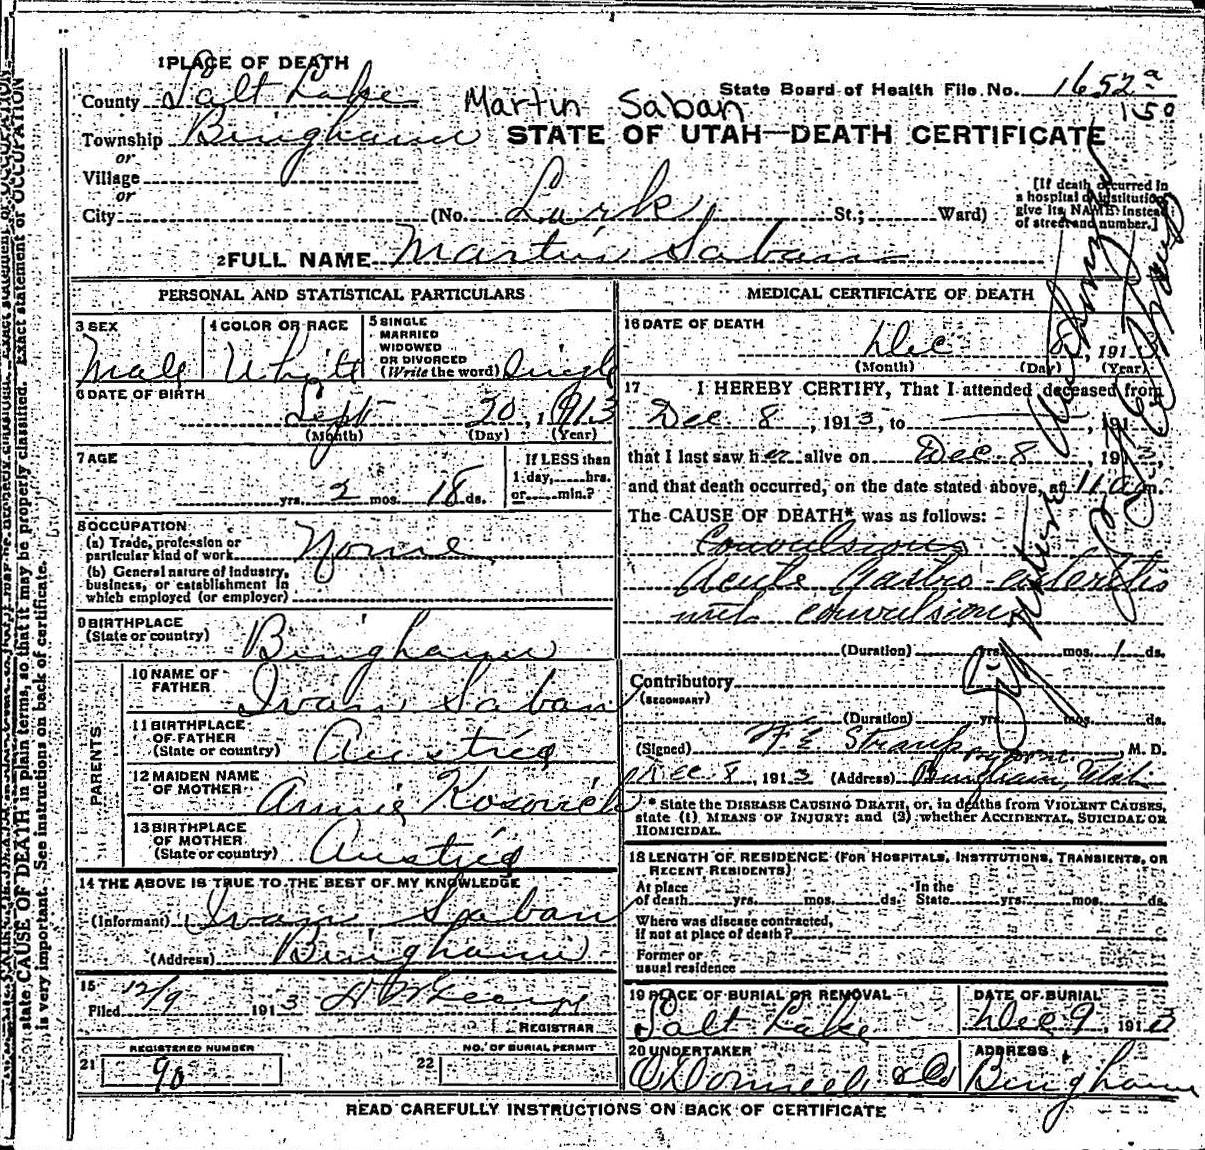 1 PLACE OF DEATH
County Salt Lake
State Board of Health File No. 1652 a
150
Martin Saban
Township Bingham
STATE OF UTAH—DEATH CERTIFICATE
or
Village
or
City (No. Lark St.; Ward)
[If death occurred in a hospital or institution, give its NAME instead of street and number.]
2 FULL NAME Martin Saban
PERSONAL AND STATISTICAL PARTICULARS
3 SEX
Male
4 COLOR OR RACE
White
5 SINGLE
MARRIED
WIDOWED
OR DIVORCED
(Write the word) Single
6 DATE OF BIRTH
Sept 20, 1913
(Month) (Day) (Year)
7 AGE
yrs. 2 mos. 18 ds.
If LESS than
1 day, hrs.
or min.?
8 OCCUPATION
(a) Trade, profession or
particular kind of work None
(b) General nature of industry,
business, or establishment in
which employed (or employer)
9 BIRTHPLACE
(State or country) Bingham
PARENTS
10 NAME OF
FATHER Ivan Saban
11 BIRTHPLACE
OF FATHER
(State or country) Austria
12 MAIDEN NAME
OF MOTHER Annie Kosovich
13 BIRTHPLACE
OF MOTHER
(State or country) Austria
14 THE ABOVE IS TRUE TO THE BEST OF MY KNOWLEDGE
(Informant) Ivan Saban
(Address) Bingham
15
Filed 12/9 1913
REGISTRAR
REGISTERED NUMBER
21 90
NO. OF BURIAL PERMIT
22
MEDICAL CERTIFICATE OF DEATH
16 DATE OF DEATH
Dec 8, 191
(Month) (Day) (Year)
17 I HEREBY CERTIFY, That I attended deceased from
Dec. 8, 1913, to , 191
that I last saw h alive on Dec. 8, 1913,
and that death occurred, on the date stated above, at 11 a m.
The CAUSE OF DEATH* was as follows:
Convulsions
Acute Gastro-enteritis
with convulsions
(Duration) yrs. mos. 1 ds.
Contributory
(SECONDARY)
(Duration) yrs. mos. ds.
(Signed) F E Straup, M. D.
Dec. 8, 1913 (Address) Bingham, Utah
* State the DISEASE CAUSING DEATH, or, in deaths from VIOLENT CAUSES,
state (1) MEANS OF INJURY; and (2) whether ACCIDENTAL, SUICIDAL OR
HOMICIDAL.
18 LENGTH OF RESIDENCE (FOR HOSPITALS, INSTITUTIONS, TRANSIENTS, OR
RECENT RESIDENTS)
At place
of death yrs. mos. ds.
In the
State yrs. mos. ds.
Where was disease contracted,
if not at place of death?
Former or
usual residence
19 PLACE OF BURIAL OR REMOVAL
Salt Lake
DATE OF BURIAL
Dec 9, 1913
20 UNDERTAKER
O'Donnell & Co
ADDRESS
Bingham
READ CAREFULLY INSTRUCTIONS ON BACK OF CERTIFICATE
state CAUSE OF DEATH in plain terms, so that it may be properly classified. Exact statement of OCCUPATION
is very important. See instructions on back of certificate.